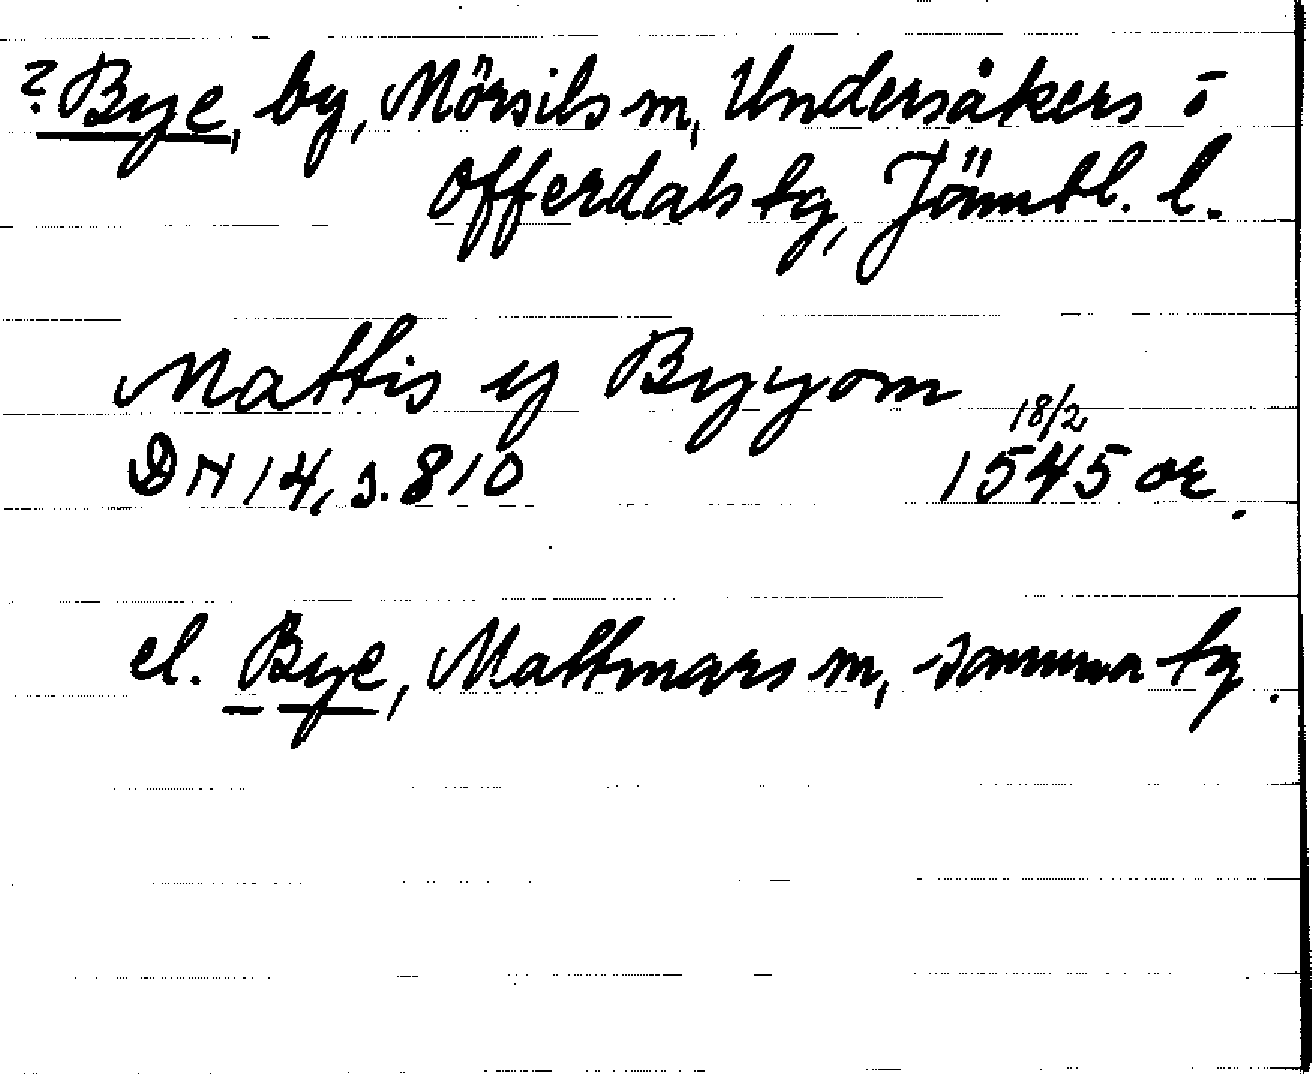 ? Bye, by, Mörsils sn, Undersåkers o
Offerdals tg, Jämtl. l.
Mattis y Byyom
18/2
DN 14, s. 810 1545 or.
el. Bye, Mattmars sn, samma tg.